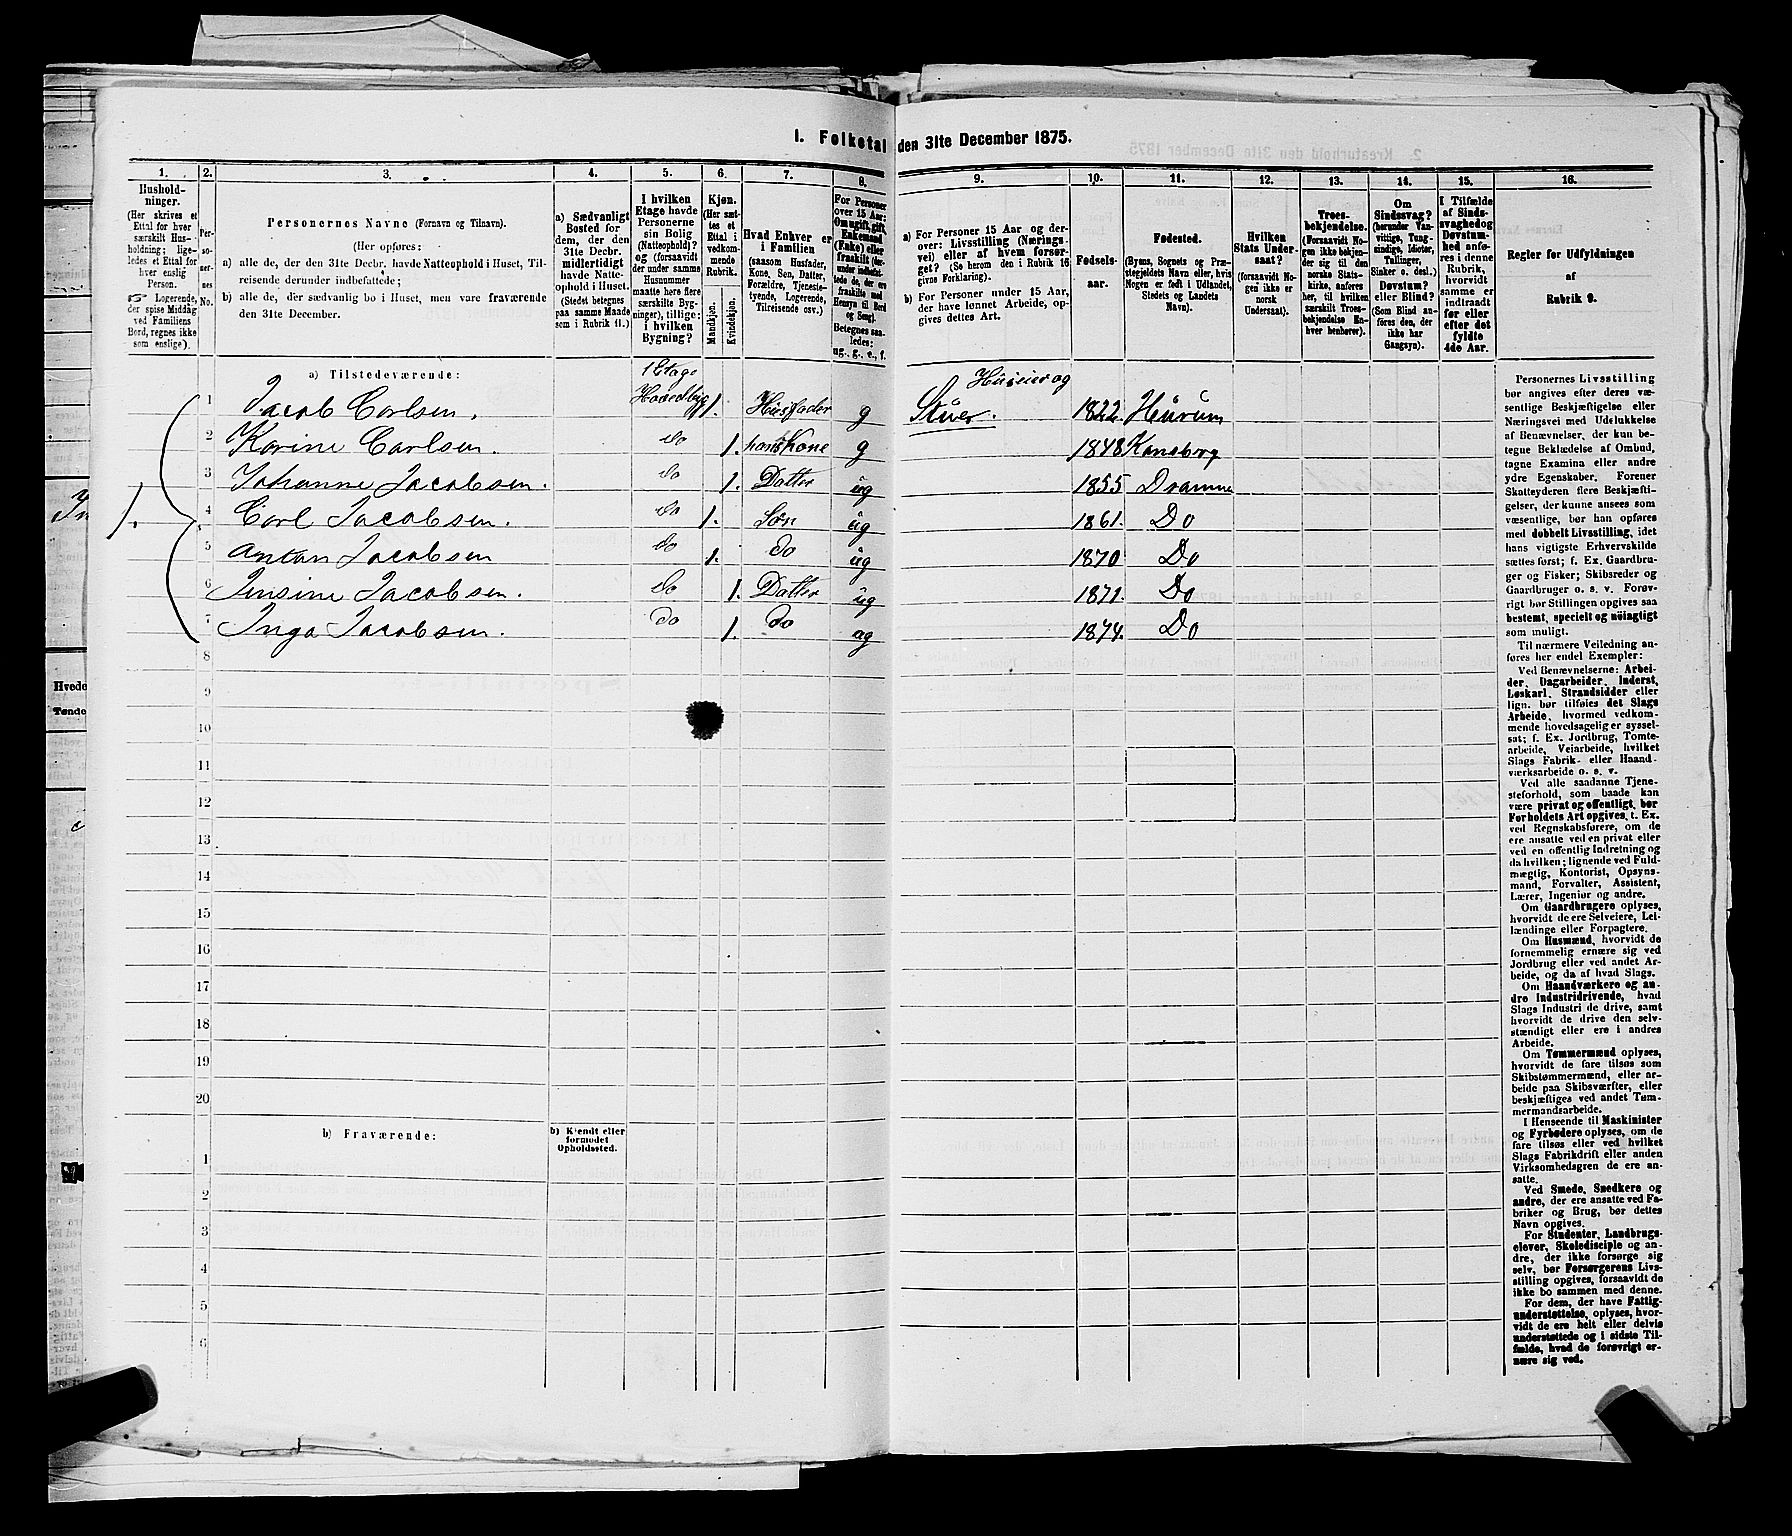 1. Folketal den 31te December 1875.
1. 2. 3. 4. 5. 6. 7. 8. 9. 10. 11. 12. 13. 14. 15. 16.
Hushold-
ninger.
(Her skrives et
Ettal for hver
særskilt Hus-
holdning; lige-
ledes et Ettal for
hver enslig
Person.
☞ Logerende,
der spise Middag
ved Familiens
Bord, regnes ikke
som enslige).
Per-
so-
ner-
nes
No.
Personernes Navne (Fornavn og Tilnavn).
(Her opføres:
a) alle de, der den 31te Decbr. havde Natteophold i Huset, Til-
reisende derunder indbefattede;
b) alle de, der sædvanlig bo i Huset, men vare fraværende
den 31te December.
a) Sædvanligt
Bosted for
dem, der den
31te Decbr.
midlertidigt
havde Natte-
ophold i Huset.
(Stedet betegnes
paa samme Maade
som i Rubrik 11.)
I hvilken
Etage havde
Personerne
sin Bolig
(Natteophold)?
og (forsaavidt
der under samme
Husnummer
maatte høre flere
særskilte Byg-
ninger), tillige:
i hvilken
Bygning?
Kjøn.
(Her sæt-
tes et
Ettal i
vedkom-
mende
Rubrik.
Mandkjøn.
Kvindekjøn.
Hvad Enhver er
i Familien
(saasom Husfader,
Kone, Søn, Datter,
Forældre, Tjeneste-
tyende, Logerende,
Tilreisende osv.)
For Personer
over 15 Aar:
Om ugift, gift,
Enkemand
(Enke) eller
fraskilt
(der-
under indbefat-
tede de, der
ere fraskilte med
Hensyn til Bord
og Seng).
Betegnes saa-
ledes:
ug., g., e., f.
a) For Personer 15 Aar og der-
over: Livsstilling (Nærings-
vei) eller af hvem forsør-
get? (Se herom den i Rubrik 16
givne Forklaring).
b) For Personer under 15 Aar,
der have lønnet Arbeide, op-
gives dettes Art.
Fødsels-
aar.
Fødested.
(Byens, Sognets og Præ-
stegjeldets Navn eller, hvis
Nogen er født i Udlandet,
Stedets og Landets
Navn).
Hvilken
Stats Under-
saat?
(forsaavidt No-
gen ikke er
norsk
Undersaat).
Troes-
bekjendelse.
(Forsaavidt No-
gen ikke bekjen-
der sig til den
norske Stats-
kirke, anføres
her, til hvilken
særskilt Troes-
bekjendelse En-
hver henhører).
Om
Sindssvag?
(herunder Van-
vittige, Tung-
sindige, Idioter,
Tullinger,
Sinker o. desl.)
Døvstum?
eller Blind?
(Som Blind an-
føres den, der
ikke har
Gangsyn).
I Tilfælde
af Sinds-
svaghed og
Døvstum-
hed anfø-
res i denne
Rubrik,
hvorvidt
samme er
indtraadt
før eller
efter det
fyldte
4de Aar.
Regler for Udfyldningen
af
Rubrik 9.
a) Tilstedeværende:
1 Jacob Carlsen. 1 Etage Hovedbyg 1. Husfader g Huseier og Stuer. 1822. Hurum
2 Karine Carlsen. Do 1. hans Kone g 1848 Konsberg
3 Johanne Jacobsen. Do 1. Datter ug 1855 Dramme
1. 4 Carl Jacobsen. Do 1. Søn ug 1861. Do
5 Anton Jacobsen Do 1. Do ug 1870 Do
6 Jensine Jacobsen. Do 1. Datter ug 1871. Do
7 Inga Jacobsen. Do 1. Do ug 1874. Do
8
9
10
11
12
13
14
15
16
17
18
19
20
b) Fraværende:
b) Kjendt eller
formodet
Opholdssted.
1
2
3
4
5
6
Personernes Livsstilling
bør angives efter deres væ-
sentlige Beskjæftigelse eller
Næringsvei med Udelukkelse
af Benævnelser, der kun be-
tegne Beklædelse af Ombud,
tagne Examina eller andre
ydre Egenskaber. Forener
Skatteyderen flere Beskjæfti-
gelser, der kunne ansees som
væsentlige, bør han opføres
med dobbelt Livsstilling, idet
hans vigtigste Erhvervskilde
sættes først; f. Ex. Gaardbru-
ger og Fisker; Skibsreder og
Gaardbruger o. s. v. Forøv-
rigt bør Stillingen opgives saa
bestemt, specielt og nøiagtigt
som muligt.
Til nærmere Veiledning an-
føres her endel Exempler:
Ved Benævnelserne: Arbei-
der, Dagarbeider, Inderst,
Løskarl, Strandsidder eller
lign. bør tilføies det Slags
Arbeide, hvormed vedkom-
mende hovedsagelig er syssel-
sat; f. Ex. Jordbrug, Tomte-
arbeide, Veiarbeide, hvilket
Slags Fabrik- eller Haand-
værksarbeide o. s. v.
Ved alle saadanne Tjene-
steforhold, som baade kan
være privat og offentligt, bør
Forholdets Art opgives, t. Ex.
ved Regnskabsførere, om de
ere ansatte ved en privat eller
ved en offentlig Indretning og
da hvilken; lignende ved Fuld-
mægtig, Kontorist, Opsyns-
mand, Forvalter, Assistent,
Lærer, Ingeniør og andre.
Om Gaardbrugere oplyses,
hvorvidt de ere Selveiere, Lei-
lændinge eller Forpagtere.
Om Husmænd, hvorvidt de
fornemmelig ernære sig ved
Jordbrug eller ved andet Ar-
beide, og da af hvad Slags.
Om Haandværkere og an-
dre Industridrivende, hvad
Slags Industri de drive, samt
hvorvidt de drive den selv-
stændigt eller ere i andres
Arbeide.
Om Tømmermænd oplyses,
hvorvidt de fare tilsøs som
Skibstømmermænd, eller ar-
beide paa Skibsværfter, eller
beskjæftiges ved andet Tøm-
mermandsarbeide.
I Henseende til Maskinister
og Fyrbødere oplyses, om de
fare tilsøs eller ved hvilket
Slags Fabrikdrift eller anden
Virksomhedsgren de ere an-
satte.
Ved Smede, Snedkere og
andre, der ere ansatte ved Fa-
briker og Brug, bør dettes
Navn opgives.
For Studenter, Landbrugs-
elever, Skoledisciple og an-
dre, der ikke forsørge sig
selv, bør Forsørgerens Livs-
stilling opgives, forsaavidt de
ikke bo sammen med denne.
For dem, der have Fattig-
understøttelse, oplyses, hvor-
vidt de ere helt eller delvis
understøttede og i sidste Til-
fælde, hvad de forøvrigt er-
nære sig ved.
Hvede
Tønde